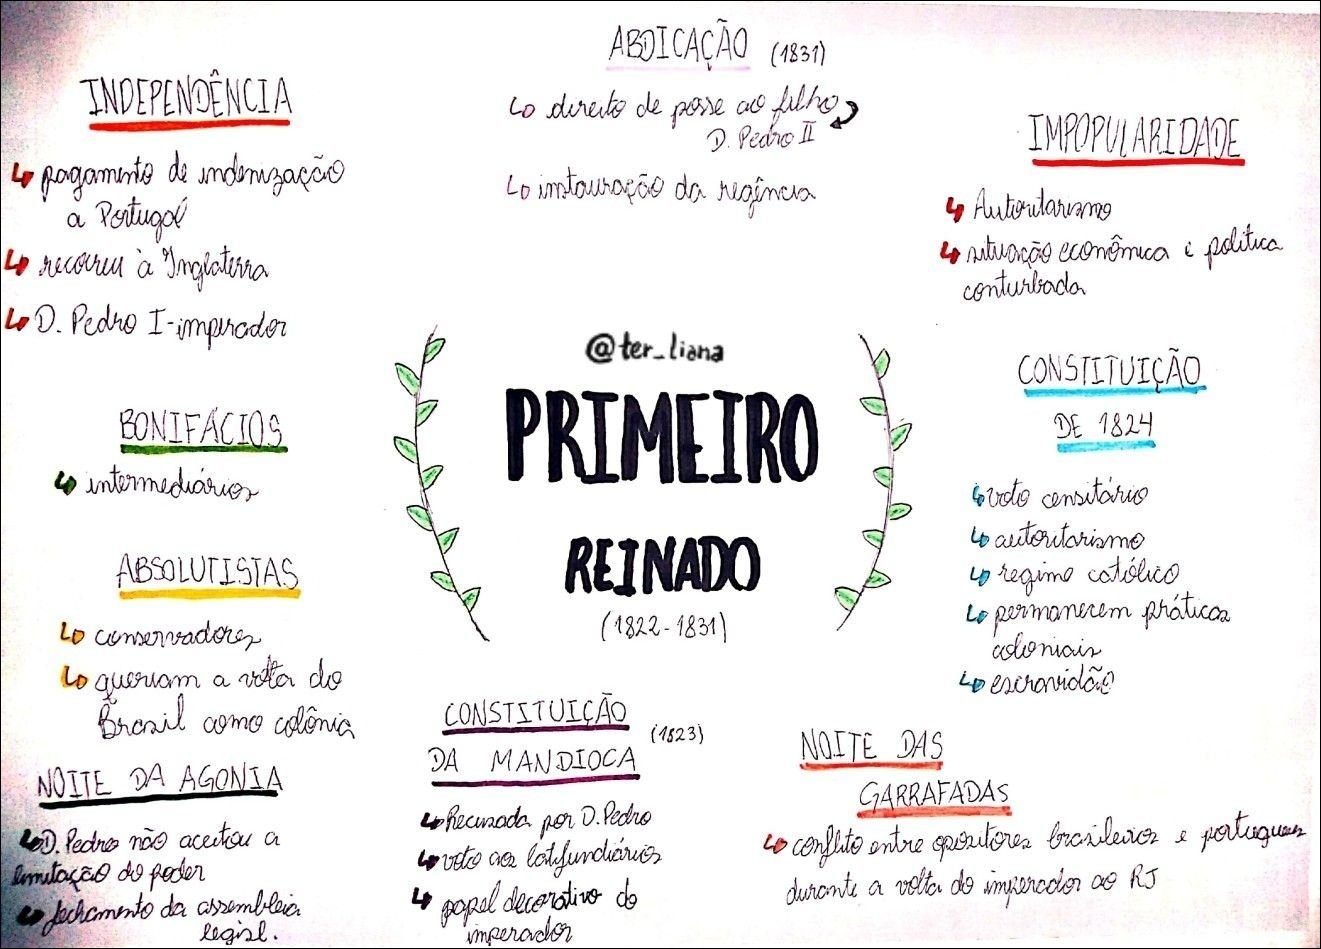 ABDICAÇÃO (1831)
direito de posse ao filho
D. Pedro II
instauração da regência
INDEPENDÊNCIA
pagamento de indenização
a Portugal
recorreu à Inglaterra
D. Pedro I - imperador
BONIFÁCIOS
intermediários
ABSOLUTISTAS
conservadores
queriam a volta do
Brasil como colônia
NOITE DA AGONIA
D. Pedro não aceitou a
limitação do poder
fechamento da assembleia
legisl.
@ter_liana
PRIMEIRO
REINADO
(1822-1831)
CONSTITUIÇÃO
DA MANDIOCA (1823)
Recusada por D. Pedro
voto aos latifundiários
papel decorativo do
imperador
IMPOPULARIDADE
Autoritarismo
situação econômica e política
conturbada
CONSTITUIÇÃO
DE 1824
voto censitário
autoritarismo
regime católico
permanecem práticas
coloniais
escravidão
NOITE DAS
GARRAFADAS
conflito entre opositores brasileiros e portugueses
durante a volta do imperador ao RJ